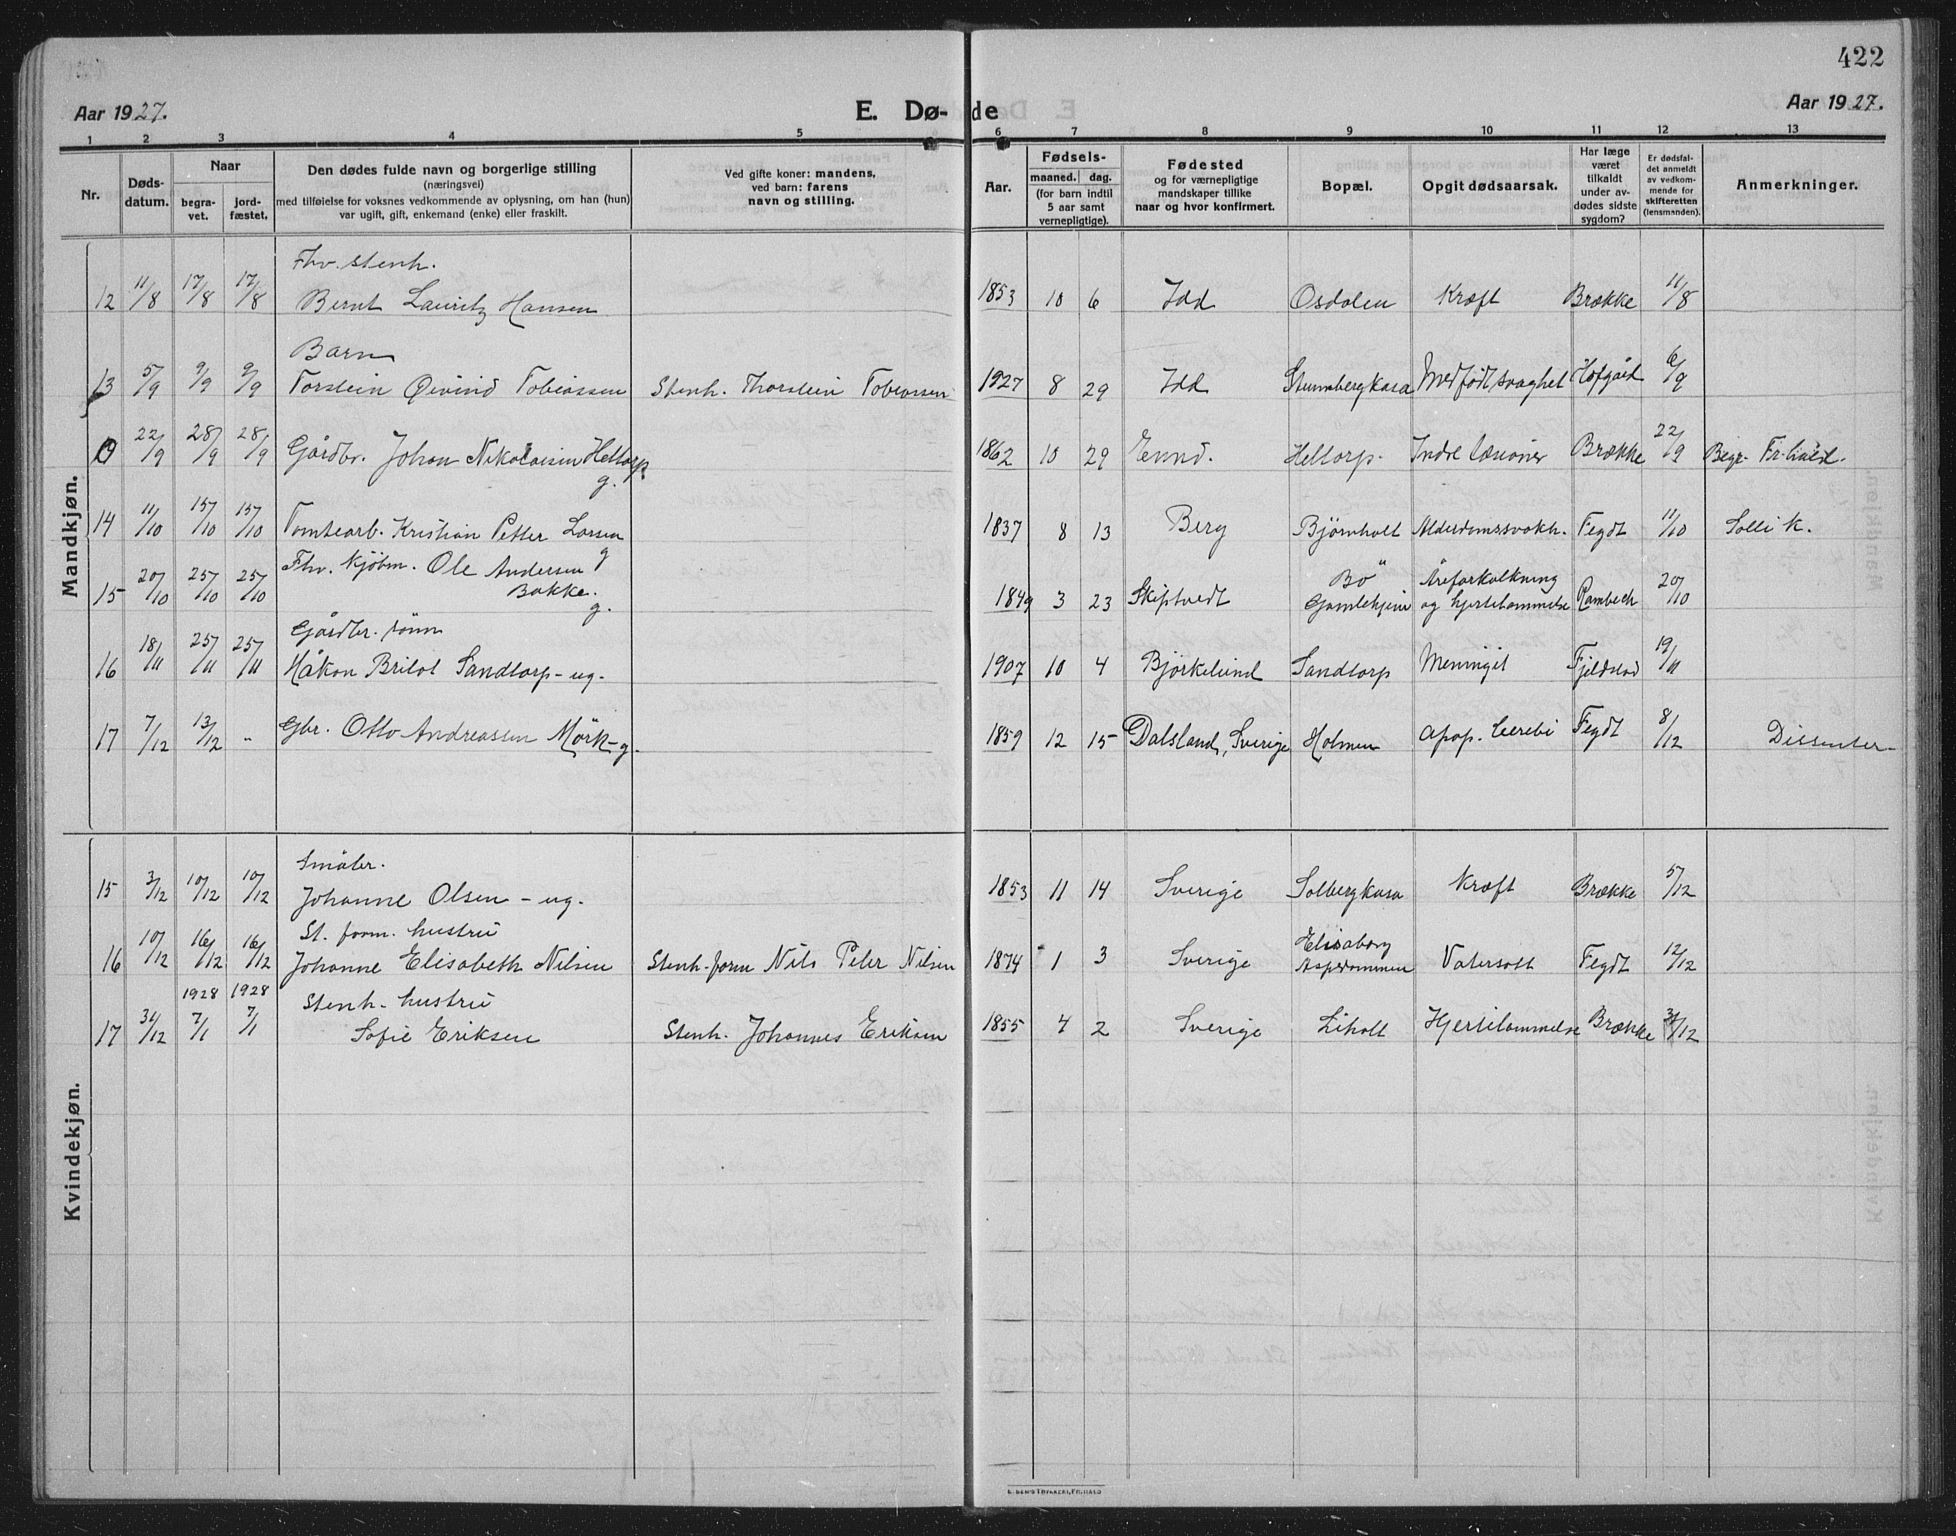 422
Aar 1927. E. Dø- de Aar 1927.
1 2 3 4 5 6 7 8 9 10 11 12 13
Nr. Døds-datum. Naar begra-vet. jord-fæstet. Den dødes fulde navn og borgerlige stilling (næringsvei) med tilføielse for voksnes vedkommende av oplysning, om han (hun) var ugift, gift, enkemand (enke) eller fraskilt. Ved gifte koner: mandens, ved barn: farens navn og stilling. Aar. Fødsels- maaned. dag. (for barn indtil 5 aar samt vernepligtige). Fødested og for værnepligtige mandskaper tillike naar og hvor konfirmert. Bopæl. Opgit dødsaarsak. Har læge været tilkaldt under av-dødes sidste sygdom? Er dødsfal-det anmeldt av vedkom-mende for skifteretten (lensmanden). Anmerkninger.
Mandkjøn.
Fhv. stenh.
12 11/8 17/8 17/8 Bernt Lauritz Hansen 1853 10 6 Idd Osdalen Kræft Brække 11/8
Barn
13 5/9 9/9 9/9 Torstein Øivind Tobiassen Stenh. Thorstein Tobiassen 1927 8 29 Idd Medfödt svaghet Hofgård 6/9
22/9 28/9 28/9 Gårdbr. Johan Nikolaisen Heltorp g. 1862 10 29 Heltorp. Indre læsioner Brække 22/9 Begr. Fr.hald.
14 11/10 15/10 15/10 Tomtearb. Kristian Petter Larsen g 1837 8 13 Berg Björnholt Alderdomssvakh. Fegdt 11/10 Solli K.
Fhv. Kjöbm. Ole Andersen
15 20/10 25/10 25/10 Bakke. g. 1849 3 23 Skiptvedt "Bo" Gamlehjem Åreforkalkning og hjertelammelse Rambech 20/10
Gårdbr. sönn
16 18/11 25/11 25/11 Håkon Sandtorp - ug. 1907 10 4 Björkelund Sandtorp Meningit Fjeldstad 19/11
17 7/12 13/12 - Gbr. Otto Andreassen Mörk - g. 1859 12 15 Dalsland, Sverige Holmen apop. cerebi Fegdt 8/12 Dissenter
Kvindekjøn.
Småbr.
15 3/12 10/12 10/12 Johanne Olsen - ug. 1853 11 14 Sverige Solbergkasa Kræft Brække 5/12
St. form. hustru
16 10/12 16/12 16/12 Johanne Elisabeth Nilsen Stenh.form Nils Peter Nilsen 1874 1 3 Sverige Elisaborg Aspedammen Vatersott Fegdt 12/12
1928 1928 Stenh. hustru
17 31/12 7/1 7/1 Sofie Eriksen Stenh. Johannes Eriksen 1855 4 2 Sverige Liholt Hjertelammelse Brække 31/12